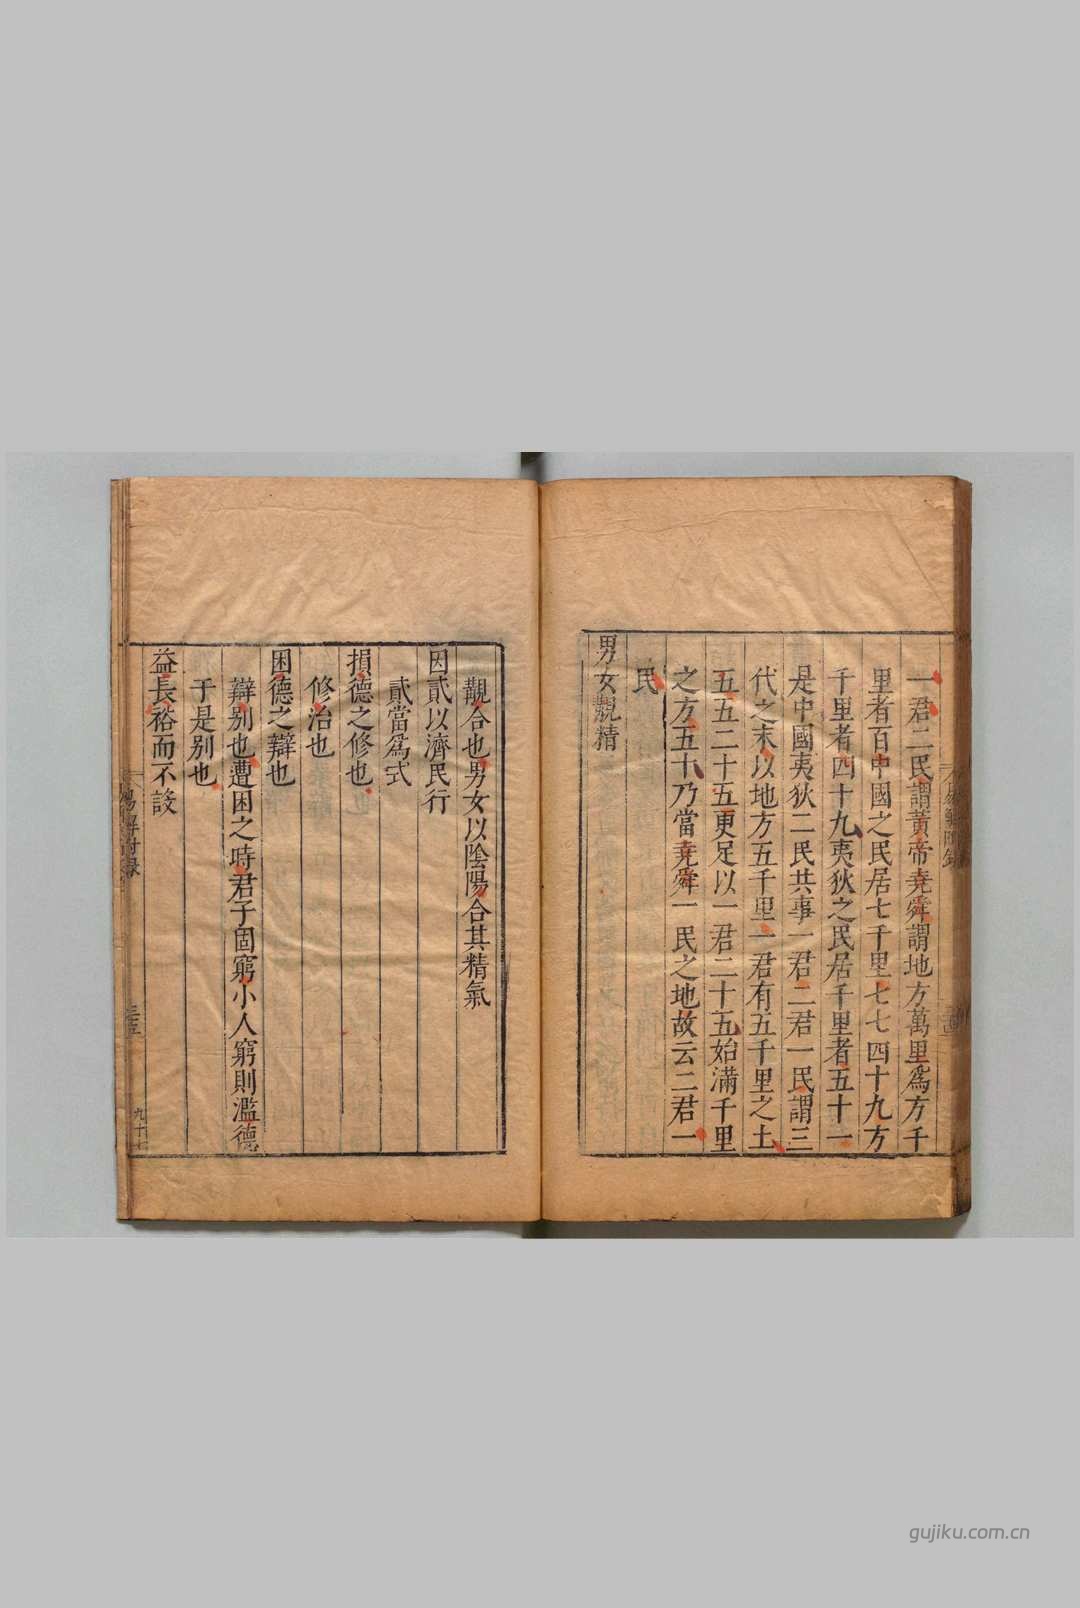 一君二民謂黃帝堯舜謂地方萬里爲方千
里者百中國之民居七千里七七四十九方
千里者四十九夷狄之民居千里者五十一
是中國夷狄二民共事一君二君一民謂三
代之末以地方五千里一君有五千里之土
五五二十五更足以一君二十五始滿千里
之方五十乃當堯舜一民之地故云二君一
民
男女覯精
覯合也男女以陰陽合其精氣
因貳以濟民行
貳當爲式
損德之修也
修治也
困德之辯也
辯别也遭困之時君子固窮小人窮則濫德
于是别也
益長裕而不設
易解附録
三五
九十七
gujiku.com.cn